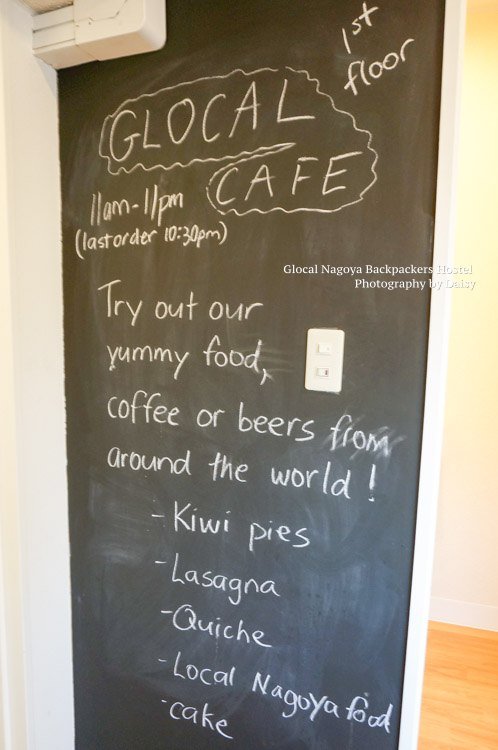 1st
floor
GLOCAL
CAFE
11am-11pm
(last order 10:30pm)
Glocal Nagoya Backpackers Hostel
Photography by Daisy
Try out our
yummy food,
coffee or beers from
around the world !
- Kiwi pies
- Lasagna
- Quiche
- Local Nagoya food
- cake